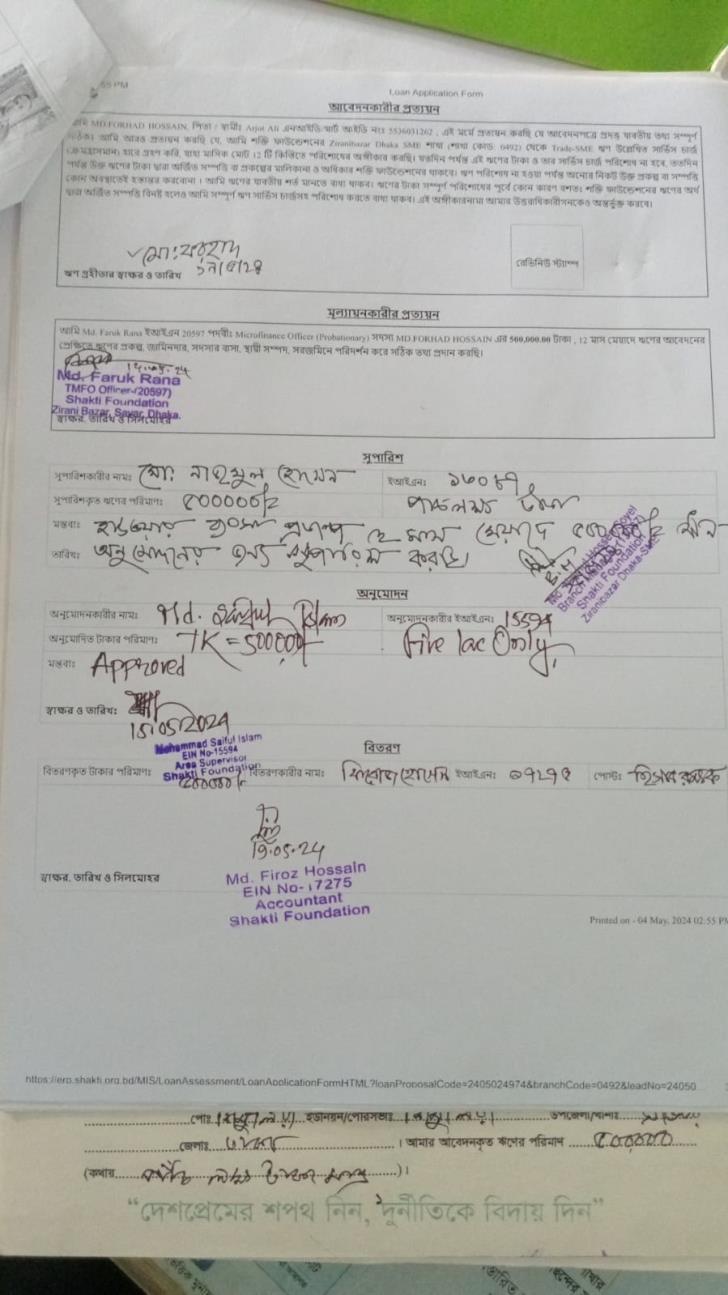 55 PM
Loan Application Form
আবেদনকারীর প্রত্যয়ন
আমি MD.FORHAD HOSSAIN, পিতা / স্বামীঃ Arjot Ali এনআইডি/স্মার্ট আইডি নংঃ 5536031262 , এই মর্মে প্রত্যয়ন করছি যে আবেদনপত্রে প্রদত্ত যাবতীয় তথ্য সম্পূর্ণ
সঠিক। আমি আরও প্রত্যয়ন করছি যে, আমি শক্তি ফাউন্ডেশনের Ziranibazar Dhaka SME শাখা (শাখা কোডঃ 0492) থেকে Trade-SME ঋণ উল্লেখিত সার্ভিস চার্জ
(ক্রমহ্রাসমান) হারে গ্রহণ করি, যাহা মাসিক মোট 12 টি কিস্তিতে পরিশোধের অঙ্গীকার করছি। যতদিন পর্যন্ত এই ঋণের টাকা ও তার সার্ভিস চার্জ পরিশোধ না হবে, ততদিন
পর্যন্ত উক্ত ঋণের টাকা দ্বারা অর্জিত সম্পত্তি বা প্রকল্পের মালিকানা ও অধিকার শক্তি ফাউন্ডেশনের থাকবে। ঋণ পরিশোধ না হওয়া পর্যন্ত অন্যের নিকট উক্ত প্রকল্প বা সম্পত্তি
কোন অবস্থাতেই হস্তান্তর করবোনা । আমি ঋণের যাবতীয় শর্ত মানতে বাধ্য থাকব। ঋণের টাকা সম্পূর্ণ পরিশোধের পূর্বে কোন কারণ বশতঃ শক্তি ফাউন্ডেশনের ঋণের অর্থ
দ্বারা অর্জিত সম্পত্তি বিনষ্ট হলেও আমি সম্পূর্ণ ঋণ সার্ভিস চার্জসহ পরিশোধ করতে বাধ্য থাকব। এই অঙ্গীকারনামা আমার উত্তরাধিকারীগনকেও অন্তর্ভুক্ত করবে।
মোঃ ফরহাদ
রেভিনিউ স্ট্যাম্প
ঋণ গ্রহীতার স্বাক্ষর ও তারিখ
মূল্যায়নকারীর প্রত্যয়ন
আমি Md. Faruk Rana ইআইএন 20597 পদবীঃ Microfinance Officer (Probationary) সদস্য MD.FORHAD HOSSAIN এর 500,000.00 টাকা , 12 মাস মেয়াদে ঋণের আবেদনের
প্রেক্ষিতে ঋণের প্রকল্প, জামিনদার, সদস্যর বাসা, স্থায়ী সম্পদ, সরজমিনে পরিদর্শন করে সঠিক তথ্য প্রদান করছি।
Md. Faruk Rana
TMFO Officer-(20597)
Shakti Foundation
Zirani Bazar, Savar, Dhaka.
স্বাক্ষর, তারিখ ও সিলমোহর
সুপারিশ
সুপারিশকারীর নামঃ মোঃ নাহমুল হোসেন ইআইএনঃ ১৬০৪৭
সুপারিশকৃত ঋণের পরিমাণঃ ৫০০০০০/= পাঁচলক্ষ টাকা
মন্তব্যঃ ব্যবসা প্রকল্পে ১২ মাস মেয়াদে ৫০০০০০/= ঋণ
তারিখঃ অনুমোদনের জন্য সুপারিশ করছি।
Branch Manager
Shakti Foundation
Ziranibazar Dhaka-SME
অনুমোদন
অনুমোদনকারীর নামঃ Md. Saiful Islam অনুমোদনকারীর ইআইএনঃ 15594
অনুমোদিত টাকার পরিমাণঃ TK = 500000/= Five lac Only,
মন্তব্যঃ Approved
স্বাক্ষর ও তারিখঃ
15/05/2024
Mohammad Saiful Islam
EIN No-15594
Area Supervisor
Shakti Foundation
বিতরণ
বিতরণকৃত টাকার পরিমাণঃ ৫০০০০০/= বিতরণকারীর নামঃ ফিরোজ হোসেন ইআইএনঃ ১৭২৭৫ পোস্টঃ হিসাব রক্ষক
19.05.24
স্বাক্ষর, তারিখ ও সিলমোহর
Md. Firoz Hossain
EIN No-17275
Accountant
Shakti Foundation
Printed on - 04 May, 2024 02:55 PM
https://erp.shakti.org.bd/MIS/LoanAssessment/LoanApplicationFormHTML?loanProposalCode=2405024974&branchCode=0492&leadNo=24050
পোঃ ইউনিয়ন/পৌরসভাঃ উপজেলা/থানাঃ
জেলাঃ ঢাকা । আমার আবেদনকৃত ঋণের পরিমাণ ৫০০০০০
(কথায় পাঁচ লক্ষ টাকা মাত্র )।
“দেশপ্রেমের শপথ নিন, দুর্নীতিকে বিদায় দিন”